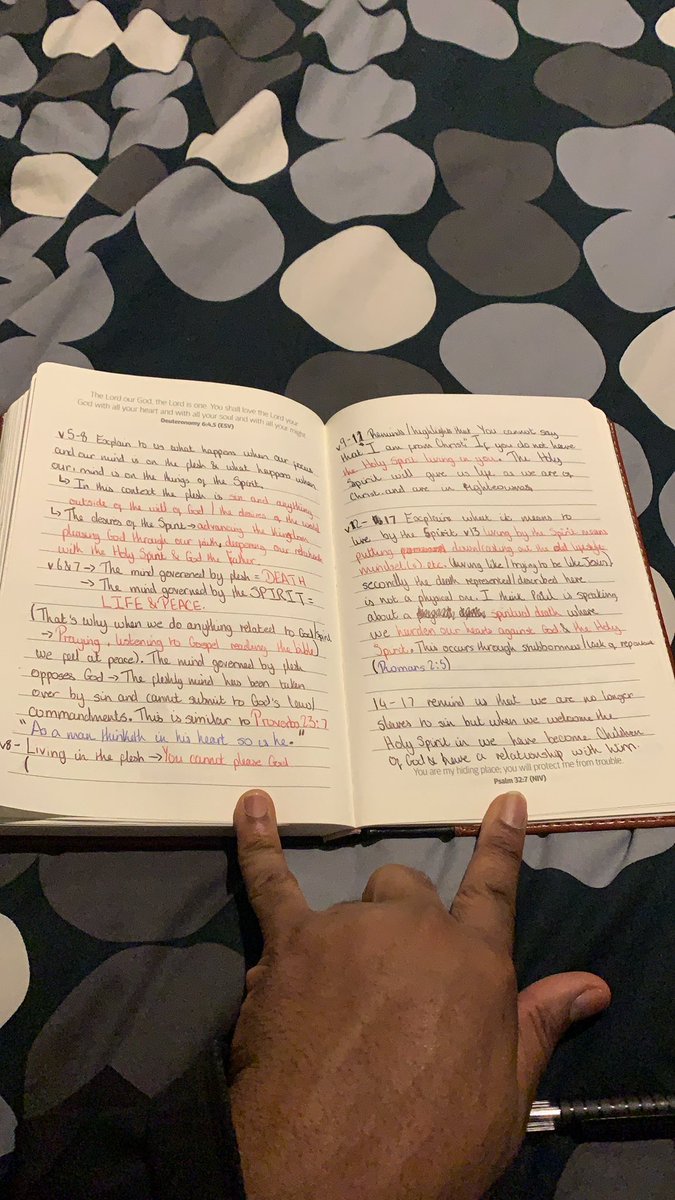 The Lord our God, the Lord is one. You shall love the Lord your
God with all your heart and with all your soul and with all your might.
Deuteronomy 6:4,5 (ESV)
v5-8 Explain to us what happens when our focus
and our mind is on the flesh & what happens when
our mind is on the things of the Spirit.
↳ In this context the flesh is sin and anything
outside of the will of God / the desires of the world
↳ The desires of the Spirit → advancing the Kingdom
pleasing God through our faith, deepening our relationship
with the Holy Spirit & God the Father.
v6&7 → The mind governed by flesh = DEATH
→ The mind governed by the SPIRIT =
LIFE & PEACE.
(That's why when we do anything related to God/Spirit
→ Praying, listening to Gospel reading the bible)
we feel at peace). The mind governed by flesh
opposes God → The fleshly mind has been taken
over by sin and cannot submit to God's law/
commandments. This is similar to Proverbs 23:7
"As a man thinketh in his heart so is he."
v8- Living in the flesh → You cannot please God
(
9-11 Reminds/highlights that You cannot say
that "I am from Christ" If you do not have
the Holy Spirit living in you. The Holy
Spirit will give us life as we are of
Christ and are in Righteousness
v12-17 Explains what it means to
live by the Spirit v13 living by the Spirit means
putting down/casting out the old
mindset(s) etc. (living like/trying to be like Jesus)
secondly the death represented/described here
is not a physical one. I think Paul is speaking
about a spiritual death where
we harden our hearts against God & the Holy
Spirit. This occurs through stubbornness/lack of repentance
(Romans 2:5)
14-17 remind us that we are no longer
slaves to sin but when we welcome the
Holy Spirit in we have become Children
of God & have a relationship with him.
You are my hiding place; you will protect me from trouble.
Psalm 32:7 (NIV)